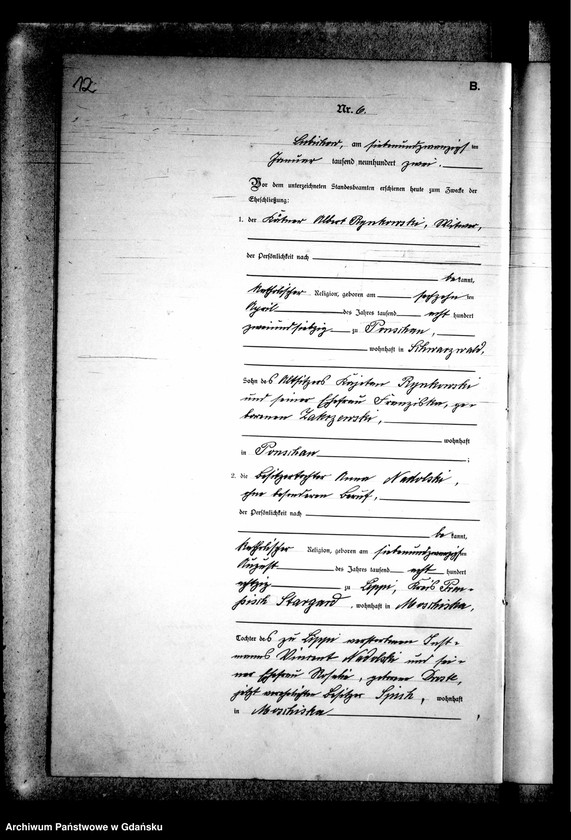 12
B.
Nr. 6.
Lubichow, am siebenundzwanzigsten
Januar tausend neunhundert zwei.
Vor dem unterzeichneten Standesbeamten erschienen heute zum Zwecke der
Eheschließung:
1. der Kätner Albert Rynkowski, Witwer,
der Persönlichkeit nach
bekannt,
katholischer Religion, geboren am sechzehnten
April des Jahres tausend acht hundert
zweiundsiebzig zu Ponschau,
wohnhaft in Schwarzwald,
Sohn des Altsitzers Kajetan Rynkowski
und seiner Ehefrau Franziska, ge-
borenen Zakrzewski,
wohnhaft
in Ponschau;
2. die Besitzertochter Anna Nadolski,
ohne besonderen Beruf,
der Persönlichkeit nach
bekannt,
katholischer Religion, geboren am siebenundzwanzigsten
August des Jahres tausend acht hundert
achtzig zu Lippi, Kreis Preu-
ßisch Stargard, wohnhaft in Moschiska,
Tochter des zu Lippi verstorbenen Inst-
manns Vincent Nadolski und sei-
ner Ehefrau Rosalie, geboren
jetzt verehelichten Besitzer, wohnhaft
in Moschiska,
Archiwum Państwowe w Gdańsku